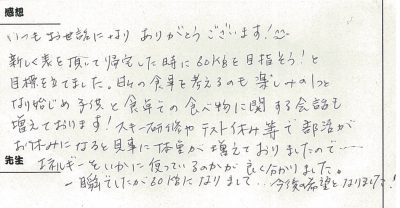 感想
いつもお世話になり ありがとうございます!
新しく表を頂して帰宅した時に60Kgを目指そう!と
目標を立てました。日々の食事を考えるのも 楽しみの1つと
なり始め 子供と食卓での食べ物に関する会話も
増えております!スキー研修やテスト休み等で部活が
お休みになると見事に体重が増えておりましたので……
先生
エネルギーをいかに使っているのかが良く分かりました。
一瞬でしたが60Kgになりまして…今後の希望となりまして!